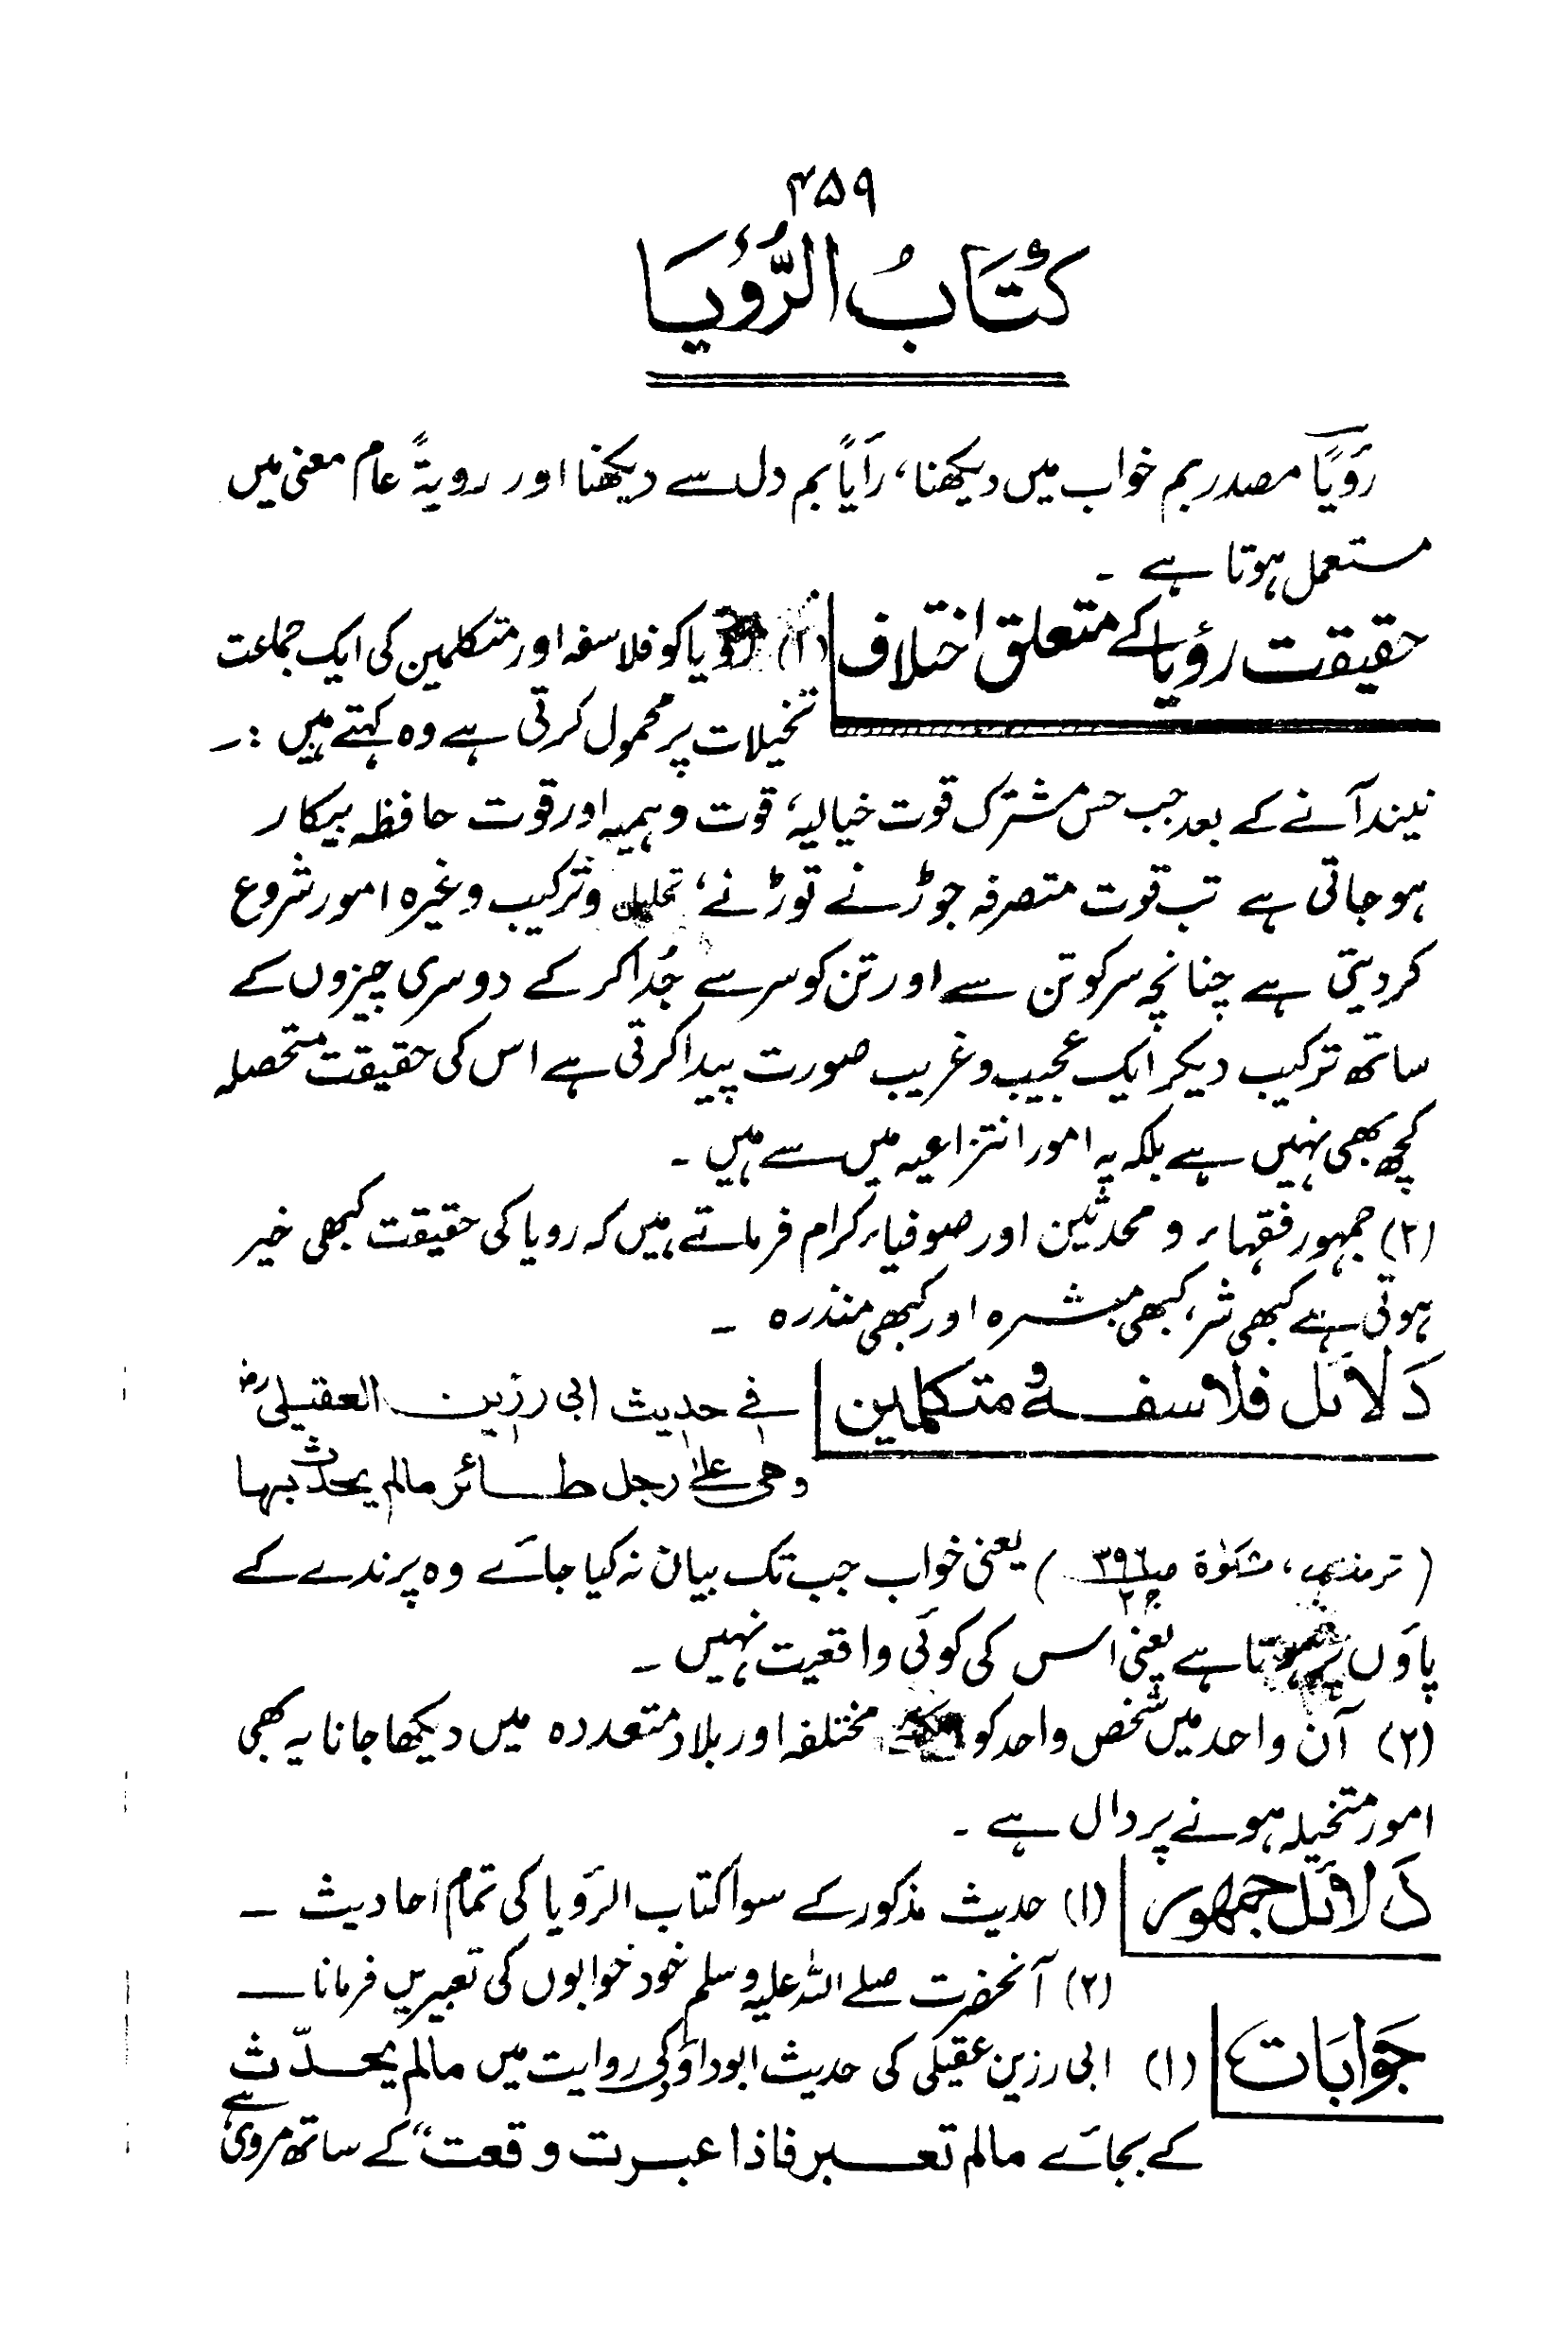 ۴۵۹
کتَابُ الرُّؤیَا
رَوَیًا مصدر بم خواب میں دیکھنا، رَأیًا بم دل سے دیکھنا اور رویۃً عام معنی میں
مستعمل ہوتا ہے ۔
حقیقت رؤیا کے متعلق اختلاف (۱) رویا کو فلاسفہ اور متکلمین کی ایک جماعت
تخیلات پر محمول کرتی ہے وہ کہتے ہیں :۔
نیند آنے کے بعد جب حس مشترک قوت خیالیہ، قوت وہمیہ اور قوت حافظہ بیکار
ہو جاتی ہے تب قوت متصرفہ جوڑنے توڑنے، تحلیل و ترکیب وغیرہ امور شروع
کر دیتی ہے چنانچہ سر کو تن سے اور تن کو سر سے جُدا کر کے دوسری چیزوں کے
ساتھ ترکیب دیکر ایک عجیب و غریب صورت پیدا کرتی ہے اس کی حقیقت متحصلہ
کچھ بھی نہیں ہے بلکہ یہ امور انتزاعیہ میں سے ہیں ۔
(۲) جمہور فقہاء و محدثین اور صوفیاء کرام فرماتے ہیں کہ رویا کی حقیقت کبھی خیر
ہوتی ہے کبھی شر، کبھی مبشرہ اور کبھی منذرہ ۔
دَلائل فلاسفہ و متکلمین فی حدیث ابی رزین العقیلی رض
وھی علیٰ رجل طائر مالم یحدث بہا
( ترمذی، مشکوٰۃ ص۳۹۶ ج۲ ) یعنی خواب جب تک بیان نہ کیا جائے وہ پرندے کے
پاؤں پر ہوتا ہے یعنی اس کی کوئی واقعیت نہیں ۔
(۲) آن واحد میں شخص واحد کو مختلفہ اور بلاد متعددہ میں دیکھا جانا یہ بھی
امور متخیلہ ہونے پر دال ہے ۔
دَلائل جمہور (۱) حدیث مذکور کے سوا کتاب الرؤیا کی تمام احادیث ۔
(۲) آنحضرت صلے اللہ علیہ وسلم خود خوابوں کی تعبیریں فرمانا ۔
جَوابَات (۱) ابی رزین عقیلی کی حدیث ابوداؤد کی روایت میں مالم یحدّث
کے بجائے مالم تعبر فاذا عبرت وقعت” کے ساتھ مروی ہے